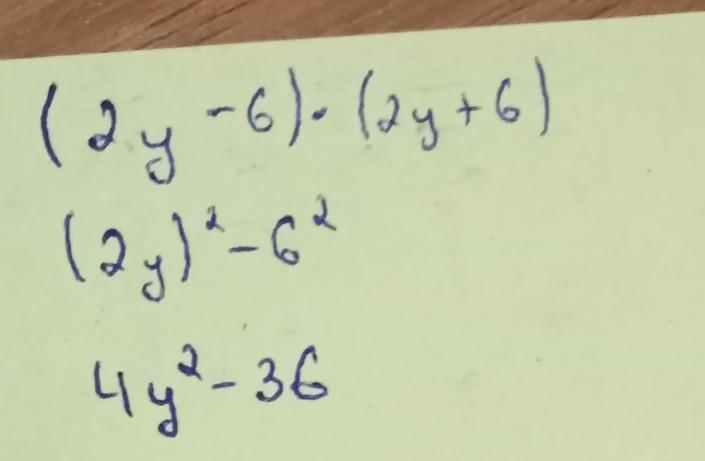 (2y - 6) · (2y + 6)
(2y)² - 6²
4y² - 36